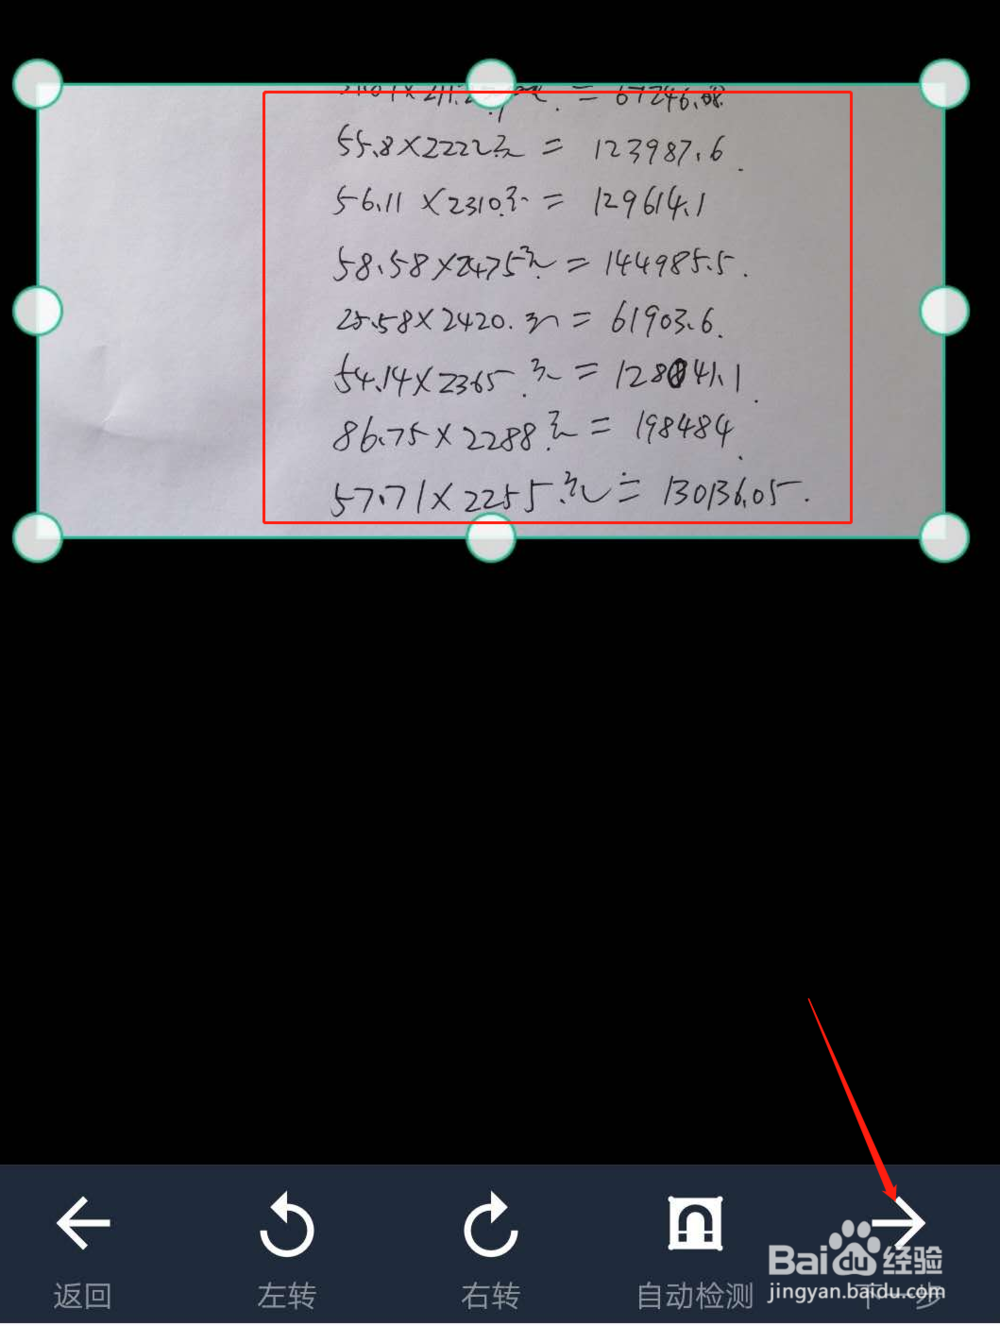 = 67246.08
55.8×2222元 = 123987.6.
56.11×2310元 = 129614.1
58.58×2475元 = 144985.5.
25.58×2420.元 = 61903.6.
54.14×2365.元 = 128041.1.
86.75×2288元 = 198484.
57.71×2255.元 = 130136.05.
返回 左转 右转 自动检测 下一步
Baidu 经验
jingyan.baidu.com